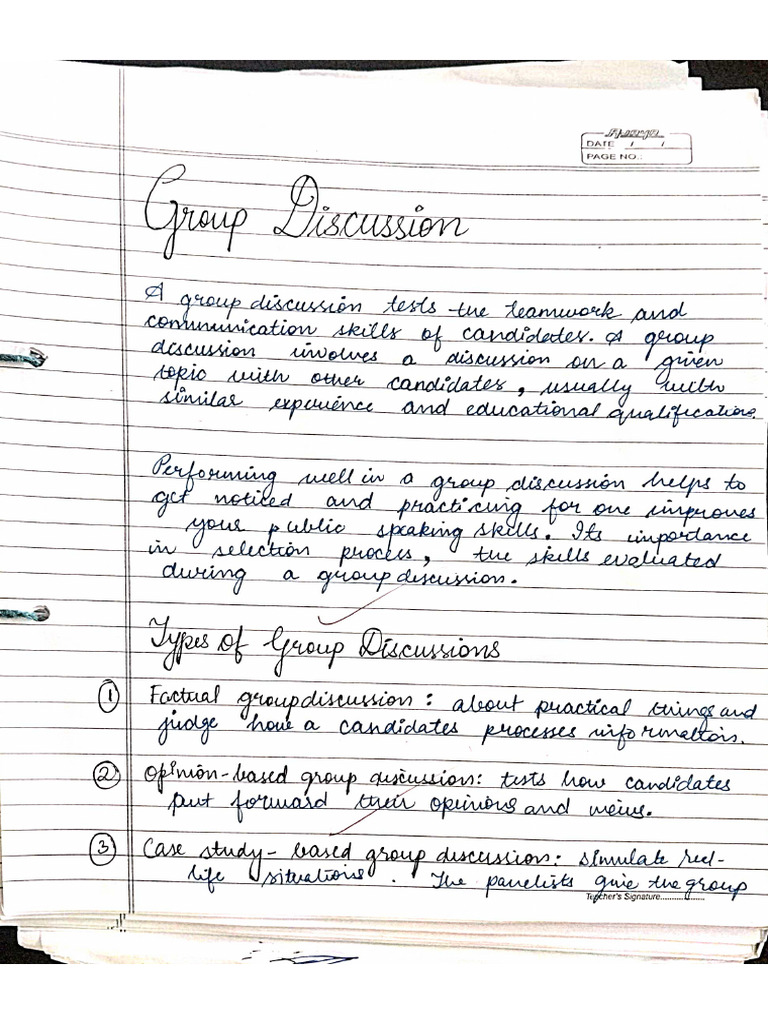 Apsara
DATE / /
PAGE NO.:
Group Discussion
A group discussion tests the teamwork and
communication skills of candidates. A group
discussion involves a discussion on a given
topic with other candidates, usually with
similar experience and educational qualifications.
Performing well in a group discussion helps to
get noticed and practicing for one improves
your public speaking skills. Its importance
in selection process, the skills evaluated
during a group discussion.
Types of Group Discussions
① Factual group discussion: about practical things and
judge how a candidates processes information.
② Opinion-based group discussion: tests how candidates
put forward their opinions and views.
③ Case study-based group discussion: simulate reel-
life situations. The panelists give the group
Teacher's Signature..................